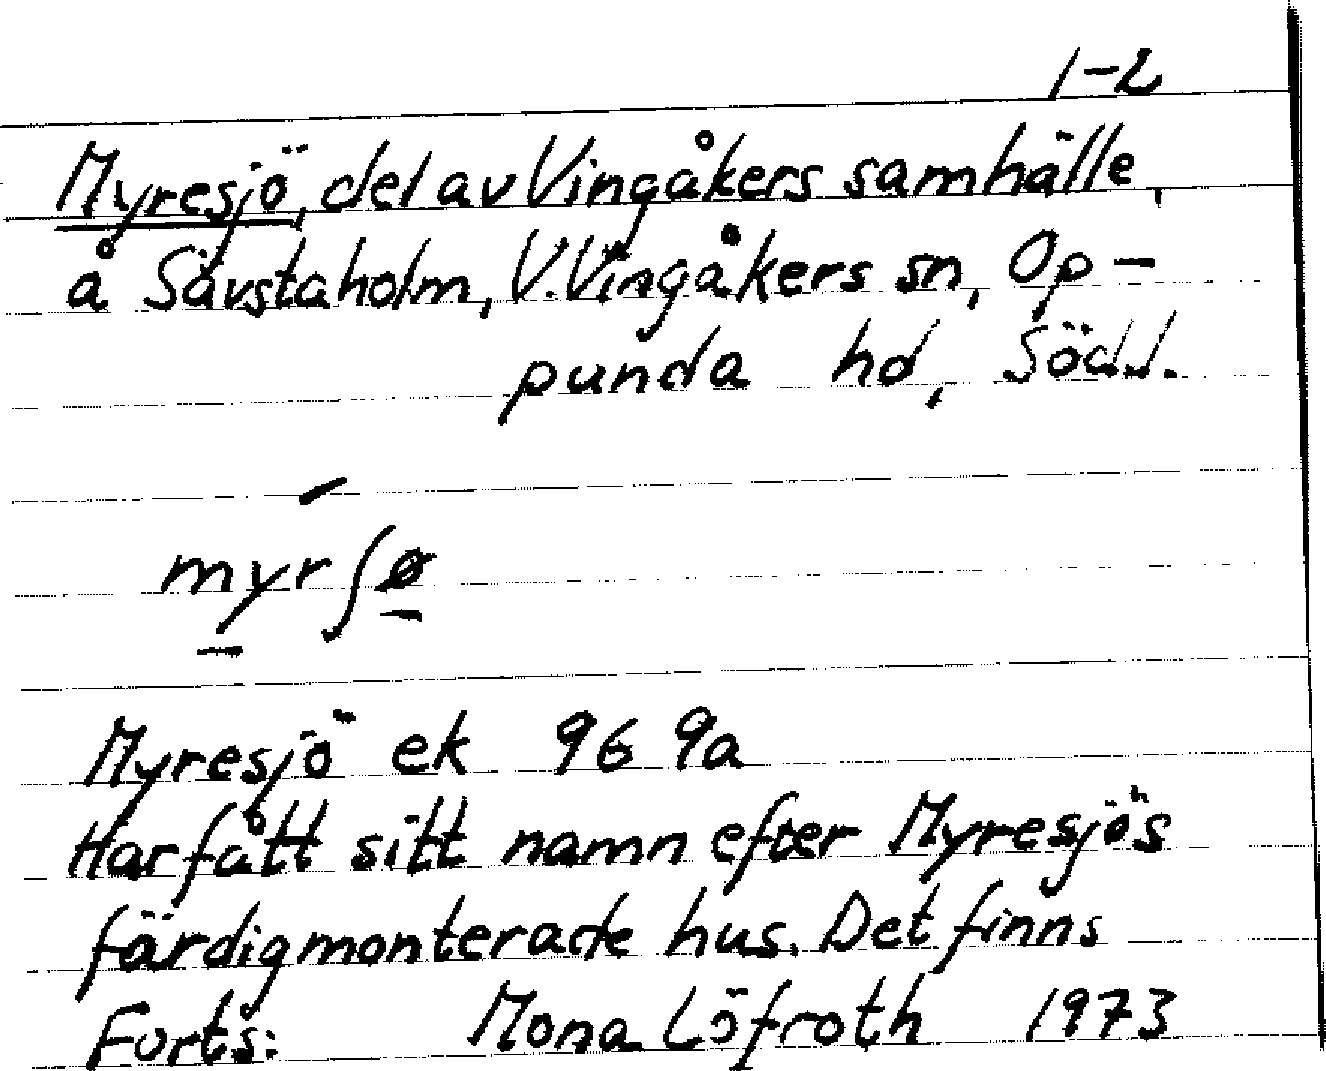 1-2
Myresjö, del av Vingåkers samhälle,
å Sävstaholm, V. Vingåkers sn, Op-
punda hd, Södd.
myrʃø
Myresjö ek 96 9a
Har fått sitt namn efter Myresjös
färdigmonterade hus. Det finns
Forts: Mona Löfroth 1973